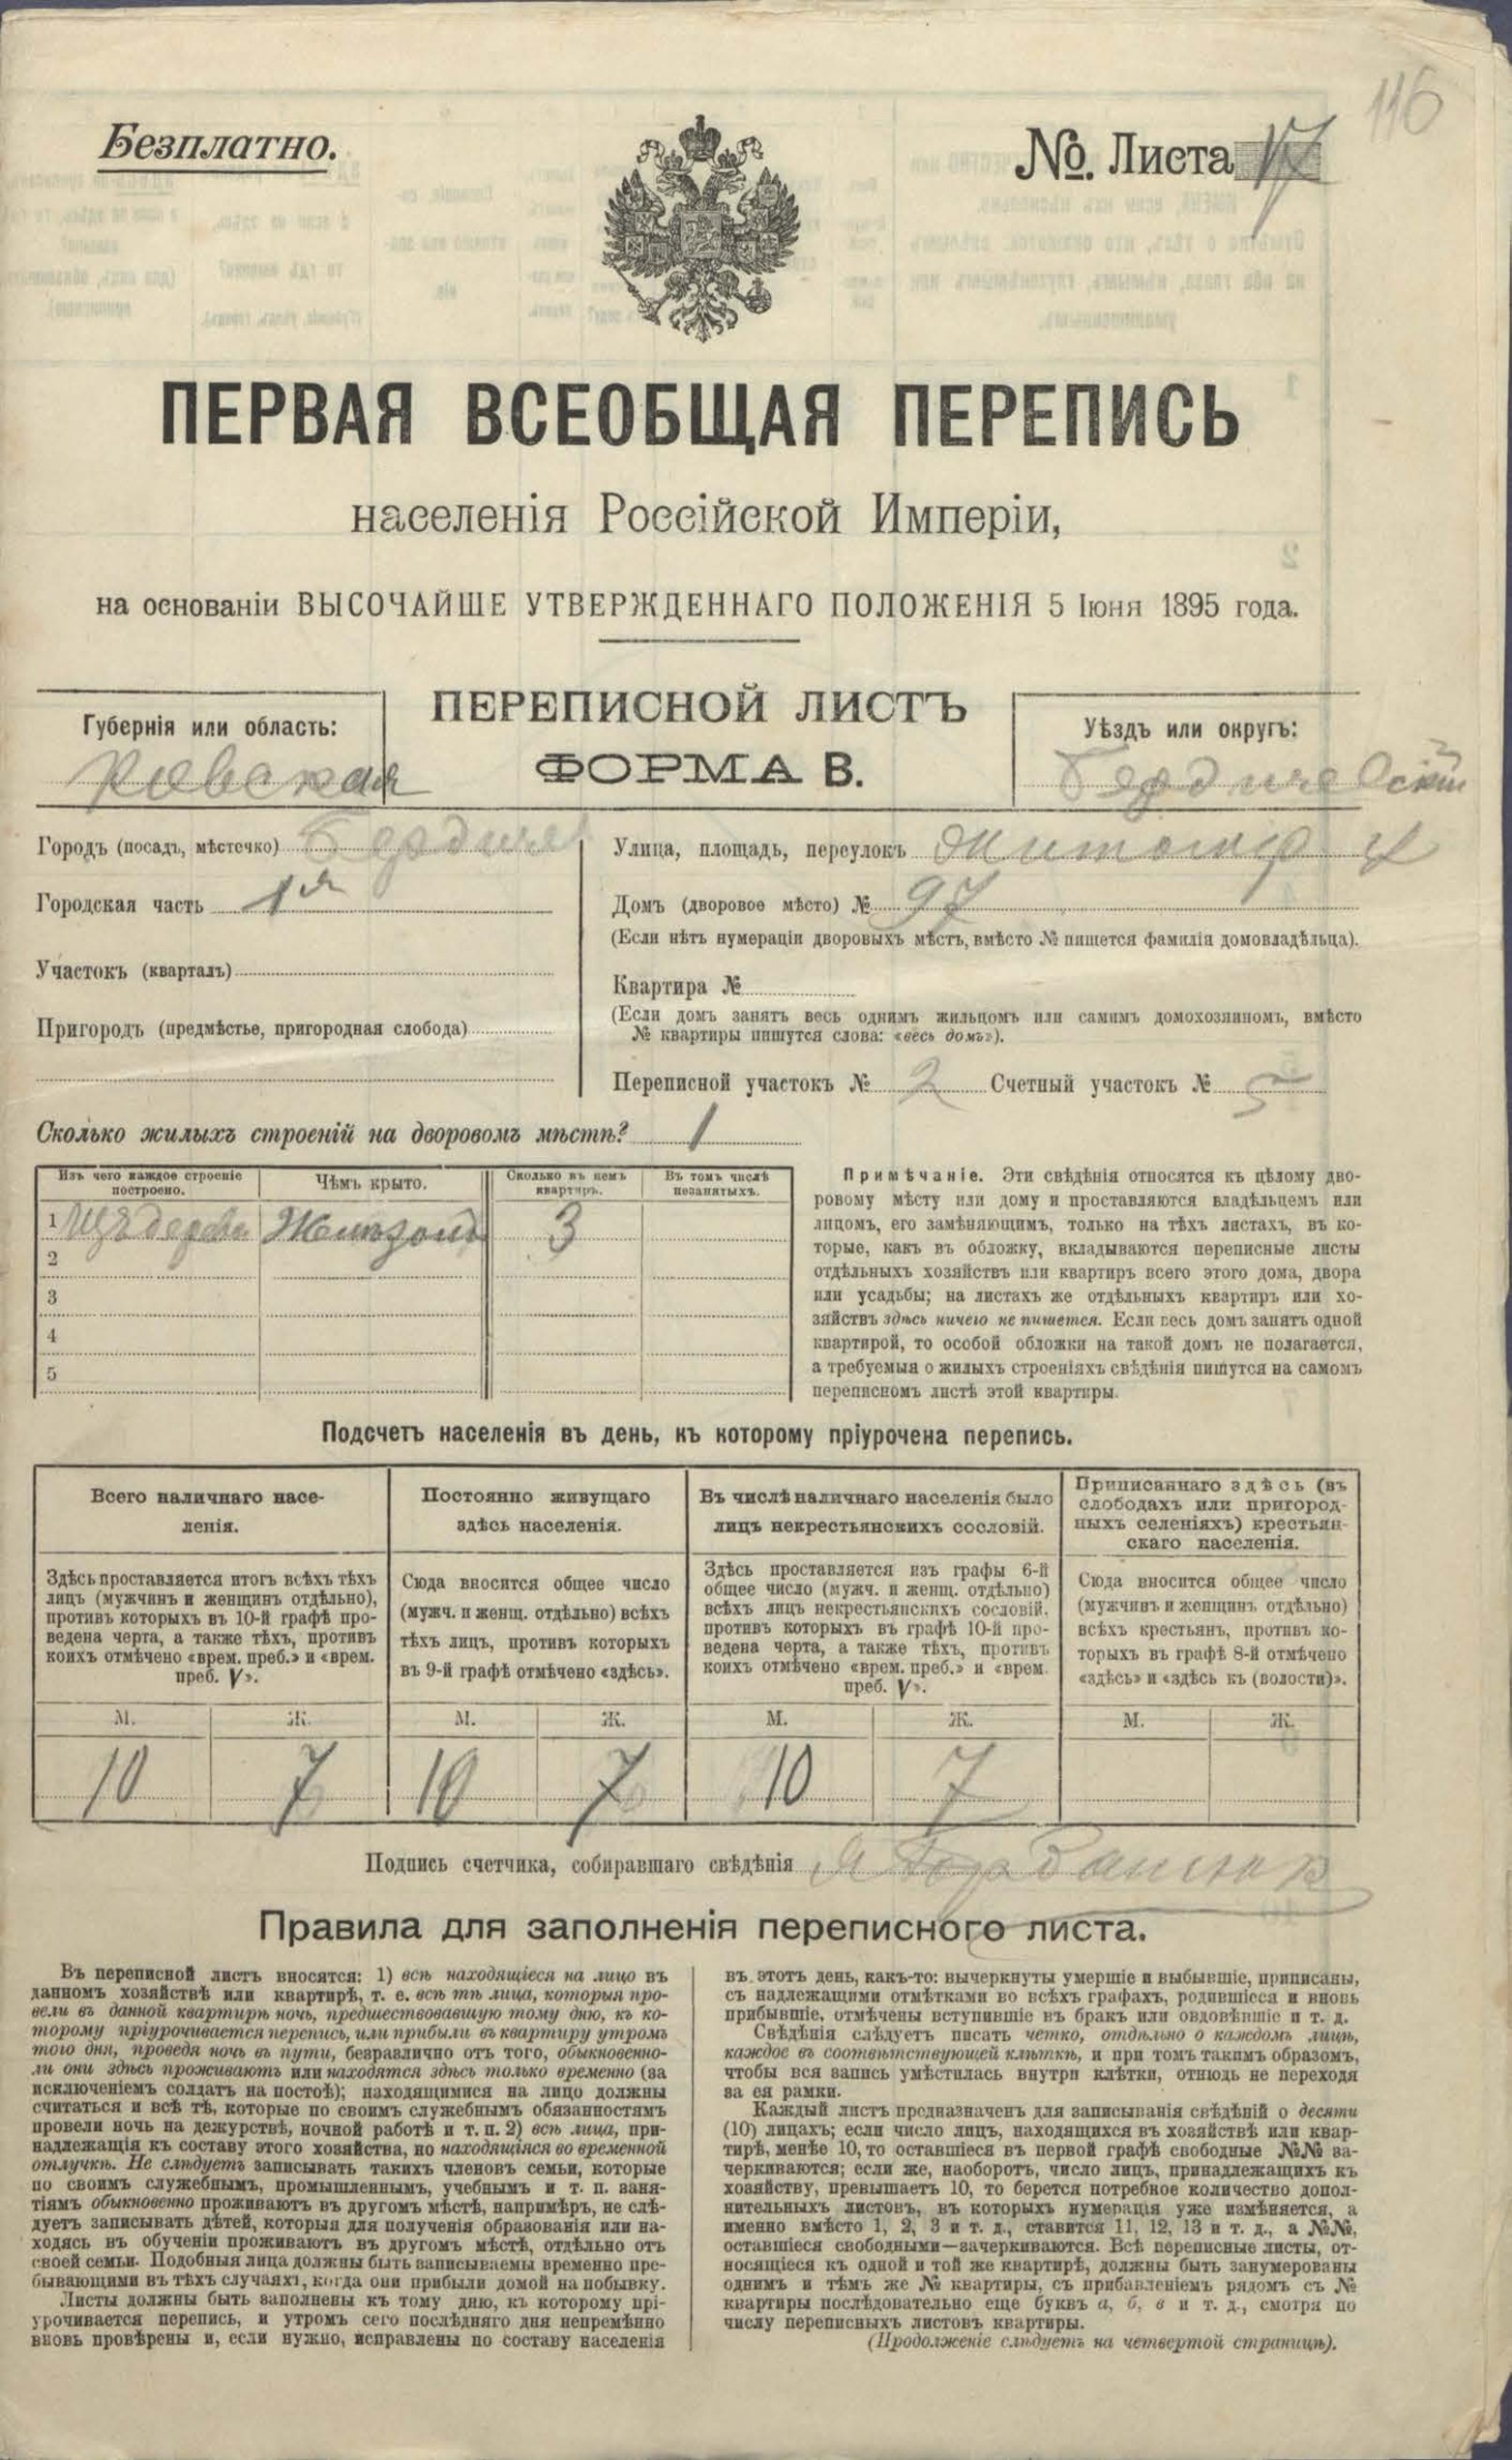 116
Безплатно.
№. Листа 17
ПЕРВАЯ ВСЕОБЩАЯ ПЕРЕПИСЬ
населенія Россійской Имперіи,
на основаніи ВЫСОЧАЙШЕ УТВЕРЖДЕННАГО ПОЛОЖЕНІЯ 5 Іюня 1895 года.
ПЕРЕПИСНОЙ ЛИСТЪ
ФОРМА В.
Губернія или область:
Киевская
Уѣздъ или округъ:
Бердичевскій
Городъ (посадъ, мѣстечко) Бердичев
Городская часть 1я
Участокъ (кварталъ)
Пригородъ (предмѣстье, пригородная слобода)
Улица, площадь, переулокъ Житомир
Домъ (дворовое мѣсто) № 97
(Если нѣтъ нумераціи дворовыхъ мѣстъ, вмѣсто № пишется фамилія домовладѣльца).
Квартира №
(Если домъ занятъ весь однимъ жильцомъ или самимъ домохозяиномъ, вмѣсто
№ квартиры пишутся слова: «весь домъ»).
Переписной участокъ № 2 Счетный участокъ № 5
Сколько жилыхъ строеній на дворовомъ мѣстѣ? 1
Изъ чего каждое строеніе построено.
Чѣмъ крыто.
Сколько въ немъ квартиръ.
Въ томъ числѣ незанятыхъ.
1 Изъ дерева Желѣзомъ 3
2
3
4
5
Примѣчаніе. Эти свѣдѣнія относятся къ цѣлому дво-
ровому мѣсту или дому и проставляются владѣльцемъ или
лицомъ, его замѣняющимъ, только на тѣхъ листахъ, въ ко-
торые, какъ въ обложку, вкладываются переписные листы
отдѣльныхъ хозяйствъ или квартиръ всего этого дома, двора
или усадьбы; на листахъ же отдѣльныхъ квартиръ или хо-
зяйствъ здѣсь ничего не пишется. Если весь домъ занятъ одной
квартирой, то особой обложки на такой домъ не полагается,
а требуемыя о жилыхъ строеніяхъ свѣдѣнія пишутся на самомъ
переписномъ листѣ этой квартиры.
Подсчетъ населенія въ день, къ которому пріурочена перепись.
Всего наличнаго насе-
ленія.
Здѣсь проставляется итогъ всѣхъ тѣхъ
лицъ (мужчинъ и женщинъ отдѣльно),
противъ которыхъ въ 10-й графѣ про-
ведена черта, а также тѣхъ, противъ
коихъ отмѣчено «врем. преб.» и «врем.
преб. V».
Постоянно живущаго
здѣсь населенія.
Сюда вносится общее число
(мужч. и женщ. отдѣльно) всѣхъ
тѣхъ лицъ, противъ которыхъ
въ 9-й графѣ отмѣчено «здѣсь».
Въ числѣ наличнаго населенія было
лицъ некрестьянскихъ сословій.
Здѣсь проставляется изъ графы 6-й
общее число (мужч. и женщ. отдѣльно)
всѣхъ лицъ некрестьянскихъ сословій,
противъ которыхъ въ графѣ 10-й про-
ведена черта, а также тѣхъ, противъ
коихъ отмѣчено «врем. преб.» и «врем.
преб. V».
Приписаннаго здѣсь (въ
слободахъ или пригород-
ныхъ селеніяхъ) крестьян-
скаго населенія.
Сюда вносится общее число
(мужчинъ и женщинъ отдѣльно)
всѣхъ крестьянъ, противъ ко-
торыхъ въ графѣ 8-й отмѣчено
«здѣсь» и «здѣсь къ (волости)».
М. Ж. М. Ж. М. Ж. М. Ж.
10 7 10 7 10 7
Подпись счетчика, собиравшаго свѣдѣнія
Правила для заполненія переписного листа.
Въ переписной листъ вносятся: 1) всѣ находящіеся на лицо въ
данномъ хозяйствѣ или квартирѣ, т. е. всѣ тѣ лица, которыя про-
вели въ данной квартирѣ ночь, предшествовавшую тому дню, къ ко-
торому пріурочивается перепись, или прибыли въ квартиру утромъ
того дня, проведя ночь въ пути, безразлично отъ того, обыкновенно-
ли они здѣсь проживаютъ или находятся здѣсь только временно (за
исключеніемъ солдатъ на постоѣ); находящимися на лицо должны
считаться и всѣ тѣ, которые по своимъ служебнымъ обязанностямъ
провели ночь на дежурствѣ, ночной работѣ и т. п. 2) всѣ лица, при-
надлежащія къ составу этого хозяйства, но находящіяся во временной
отлучкѣ. Не слѣдуетъ записывать такихъ членовъ семьи, которые
по своимъ служебнымъ, промышленнымъ, учебнымъ и т. п. заня-
тіямъ обыкновенно проживаютъ въ другомъ мѣстѣ, напримѣръ, не слѣ-
дуетъ записывать дѣтей, которыя для полученія образованія или на-
ходясь въ обученіи проживаютъ въ другомъ мѣстѣ, отдѣльно отъ
своей семьи. Подобныя лица должны быть записываемы временно пре-
бывающими въ тѣхъ случаяхъ, когда они прибыли домой на побывку.
Листы должны быть заполнены къ тому дню, къ которому прі-
урочивается перепись, и утромъ сего послѣдняго дня непремѣнно
вновь провѣрены и, если нужно, исправлены по составу населенія
въ этотъ день, какъ-то: вычеркнуты умершіе и выбывшіе, приписаны,
съ надлежащими отмѣтками во всѣхъ графахъ, родившіеся и вновь
прибывшіе, отмѣчены вступившіе въ бракъ или овдовѣвшіе и т. д.
Свѣдѣнія слѣдуетъ писать четко, отдѣльно о каждомъ лицѣ,
каждое въ соотвѣтствующей клѣткѣ, и при томъ такимъ образомъ,
чтобы вся запись умѣстилась внутри клѣтки, отнюдь не переходя
за ея рамки.
Каждый листъ предназначенъ для записыванія свѣдѣній о десяти
(10) лицахъ; если число лицъ, находящихся въ хозяйствѣ или квар-
тирѣ, менѣе 10, то оставшіеся въ первой графѣ свободные №№ за-
черкиваются; если же, наоборотъ, число лицъ, принадлежащихъ къ
хозяйству, превышаетъ 10, то берется потребное количество допол-
нительныхъ листовъ, въ которыхъ нумерація уже измѣняется, а
именно вмѣсто 1, 2, 3 и т. д., ставится 11, 12, 13 и т. д., а №№,
оставшіеся свободными—зачеркиваются. Всѣ переписные листы, от-
носящіеся къ одной и той же квартирѣ, должны быть занумерованы
однимъ и тѣмъ же № квартиры, съ прибавленіемъ рядомъ съ №
квартиры послѣдовательно еще буквъ а, б, в и т. д., смотря по
числу переписныхъ листовъ квартиры.
(Продолженіе слѣдуетъ на четвертой страницѣ).